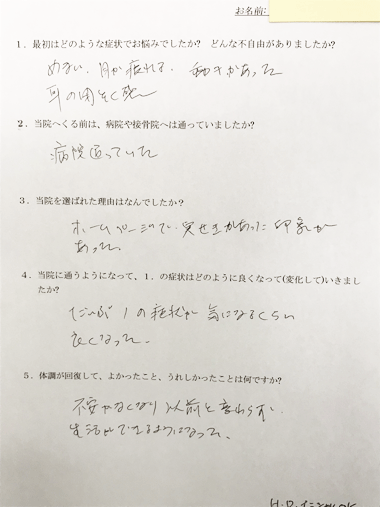 お名前:
1．最初はどのような症状でお悩みでしたか？ どんな不自由がありましたか？
めまい、目が疲れる、動きがあった
耳の閉そく感
2．当院へくる前は、病院や接骨院へは通っていましたか？
病院 通っていた
3．当院を選ばれた理由はなんでしたか？
ホームページで、実せきがあった 印象が
あった。
4．当院に通うようになって、1．の症状はどのように良くなって(変化して)いきまし
たか？
だいぶ 1の症状が 気になるくらい
良くなった。
5．体調が回復して、よかったこと、うれしかったことは何ですか？
不安がなくなり 以前と変わらず、
生活ができるようになった。
H.P. イニシャルOK